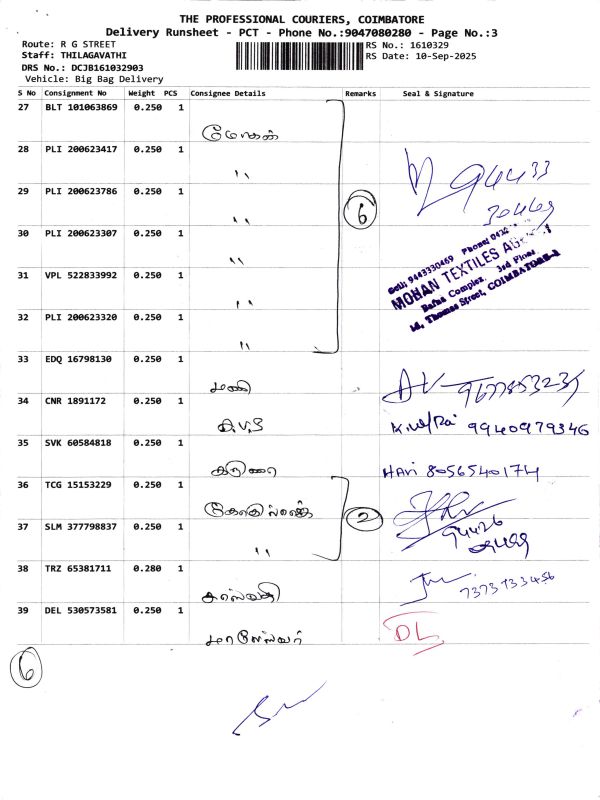 THE PROFESSIONAL COURIERS, COIMBATORE
Delivery Runsheet - PCT - Phone No.:9047080280 - Page No.:3
Route: R G STREET RS No.: 1610329
Staff: THILAGAVATHI RS Date: 10-Sep-2025
DRS No.: DCJB161032903
Vehicle: Big Bag Delivery
S No Consignment No Weight PCS Consignee Details Remarks Seal & Signature
27 BLT 101063869 0.250 1
மோகன்
28 PLI 200623417 0.250 1
"
29 PLI 200623786 0.250 1
"
6
30 PLI 200623307 0.250 1
"
31 VPL 522833992 0.250 1
"
MOHAN TEXTILES
Complex, 3rd Floor
Thomas Street, COIMBATORE-1
32 PLI 200623320 0.250 1
"
33 EDQ 16798130 0.250 1
மணி
34 CNR 1891172 0.250 1
9940979346
35 SVK 60584818 0.250 1
HAri 8056540174
36 TCG 15153229 0.250 1
2
37 SLM 377798837 0.250 1
"
38 TRZ 65381711 0.280 1
7373733456
39 DEL 530573581 0.250 1
DL
6